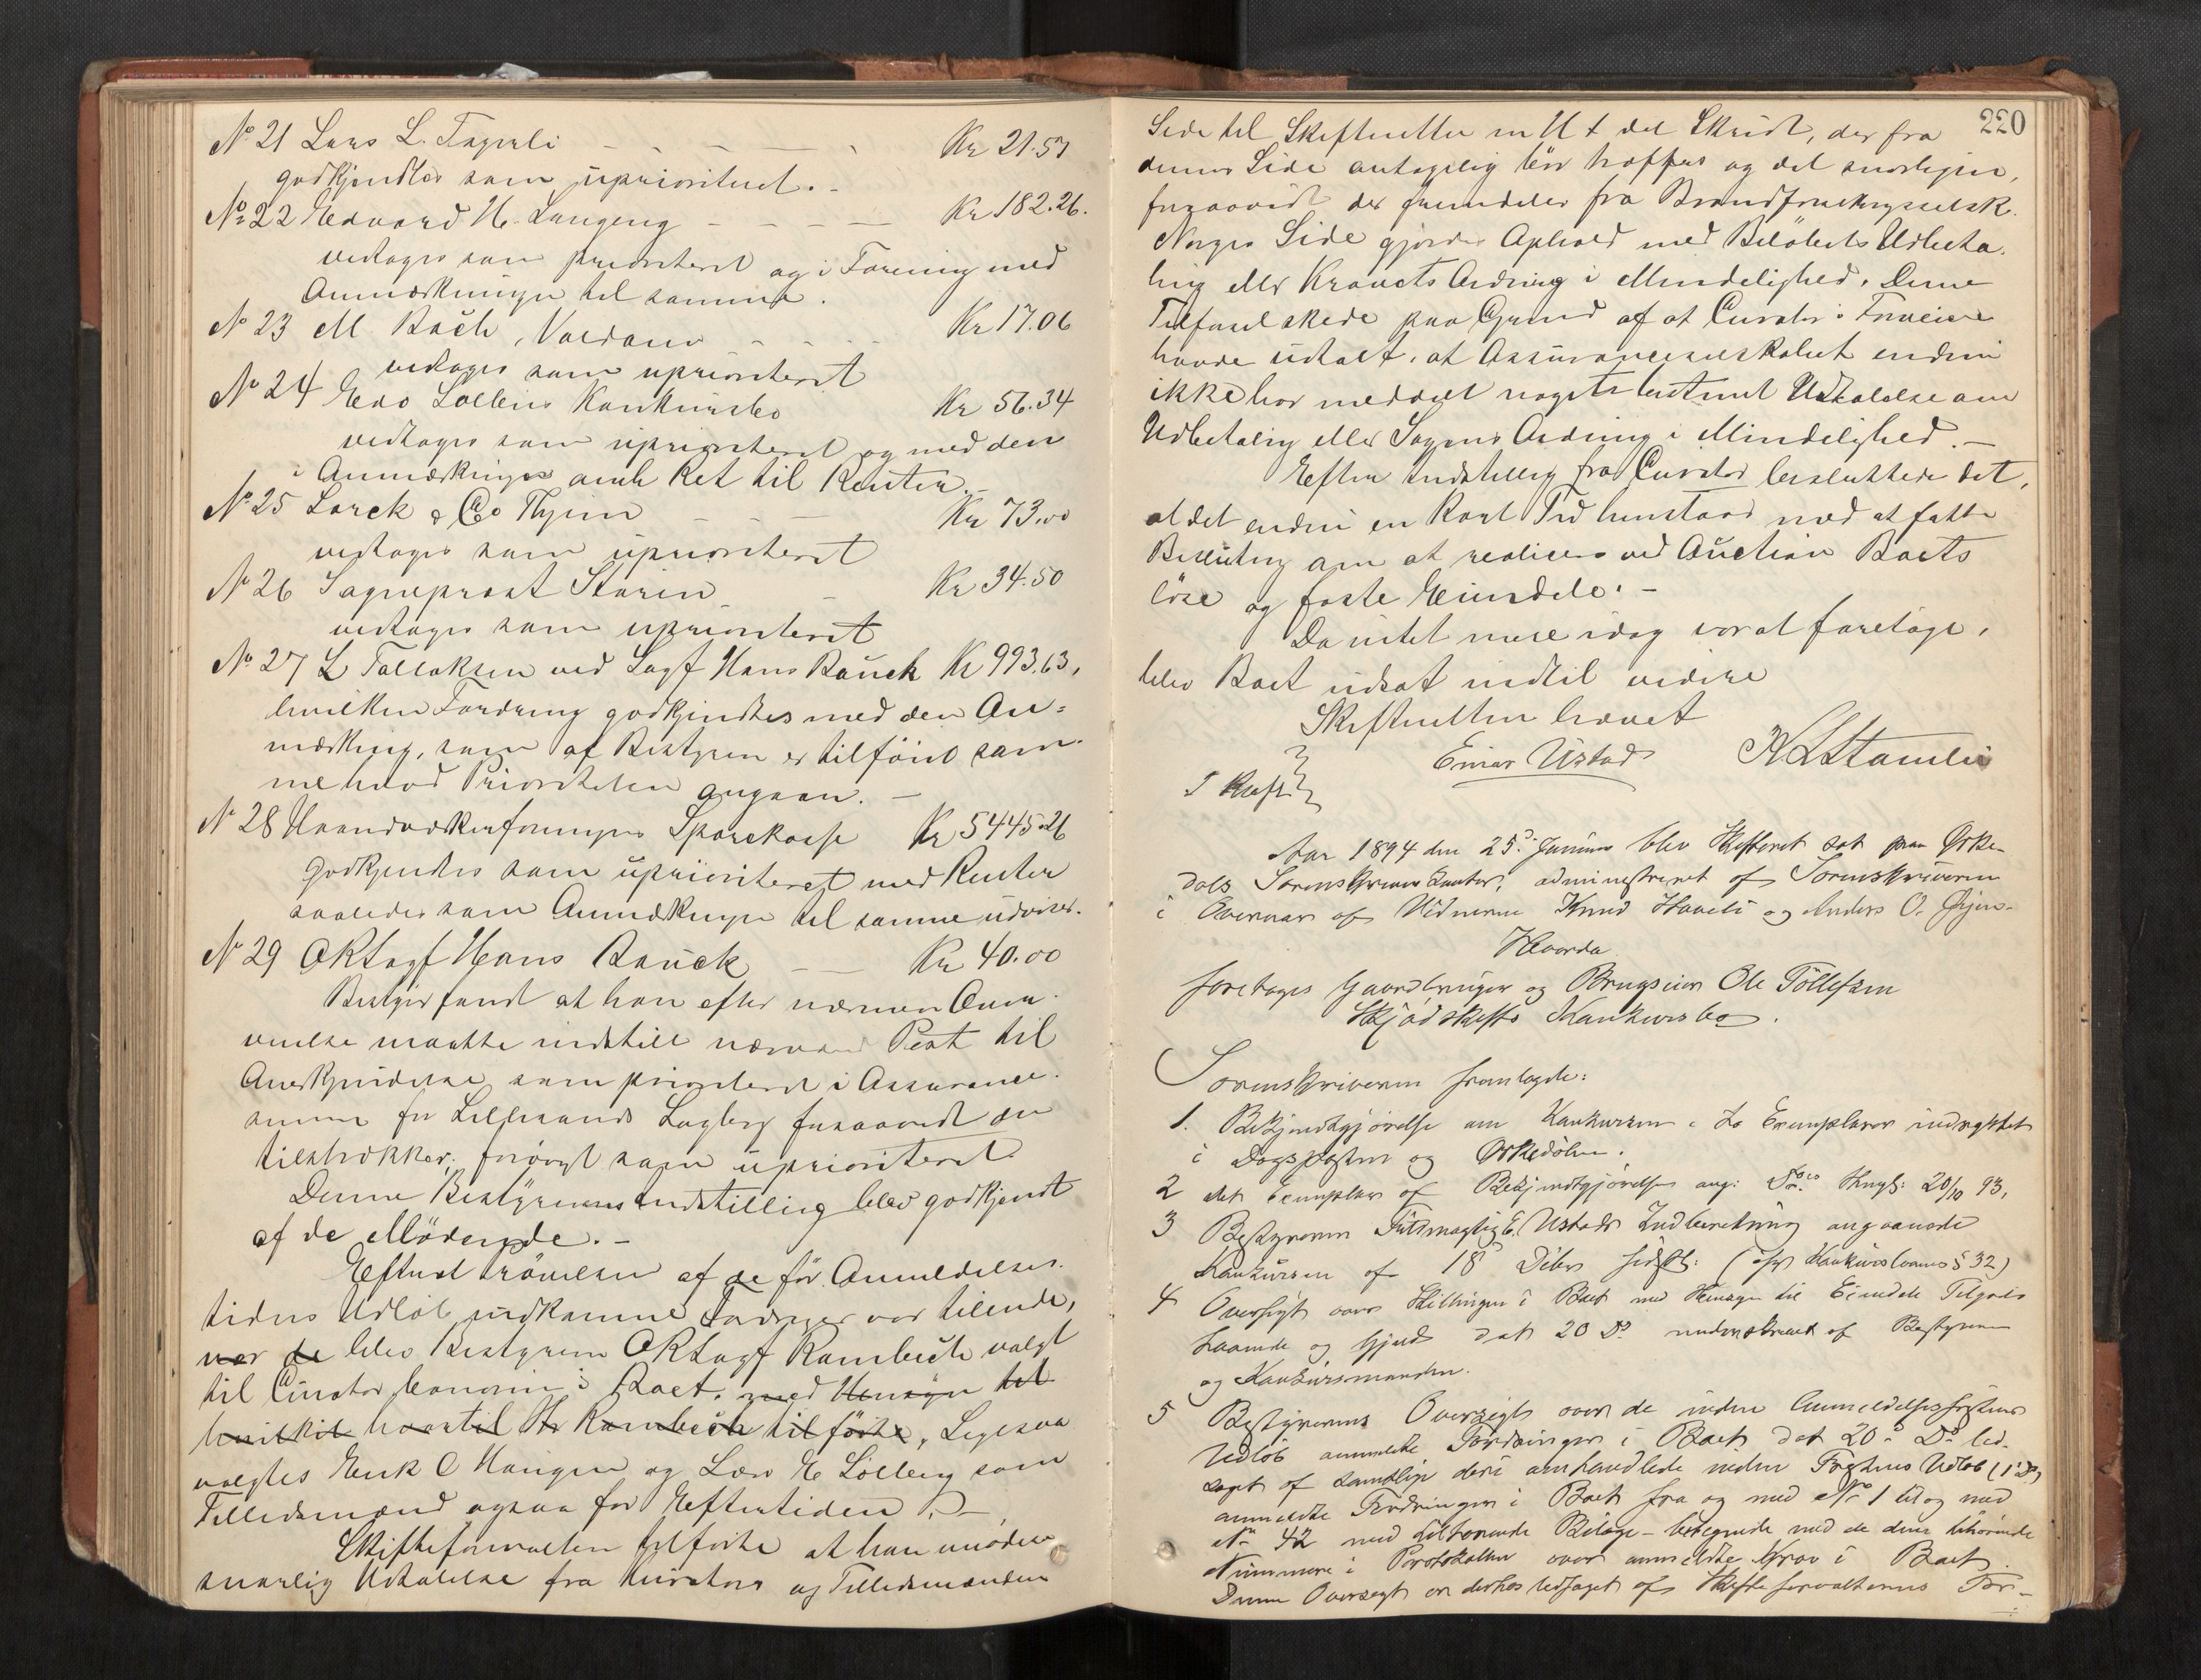 No 21 Lars L. Fagerli - - - - Kr 21.57
godkjendtes som uprioriteret. -
No 22 Edvard H. Langeng - - - - Kr 182.26.
vedtages som prioriteret og i Forening med
Anmærkningen til samme.
No 23 M. Bach, Vardanes - - - Kr 17.06
vedtages som uprioriteret
No 24 Solbergs Konkursbo Kr 56.34
vedtages som uprioriteret og med den
i Anmærkningen omh Ret til Renter. -
No 25 Lorck & Co Thjem - - - Kr 73.00
vedtages som uprioriteret
No 26 Sogneprest Steren - - Kr 34.50
vedtages som uprioriteret
No 27 L Tallaksen ved Sagf Hans Bauck Kr 993.63,
hvilken Fordring godkjendtes med den An-
mærkning, som af Bestyren er tilføiet sam-
me hvad Prioriteten angaar. -
No 28 Haandværkerforeningens Sparekasse Kr 5445.26
godkjendes som uprioriteret med Renter
saaledes som Anmærkningen til samme udviser.
No 29 ORSagf Hans Bauck - - Kr 40.00
Bestyrer fandt at han efter nærmere Over-
veielse maatte indstille nærværende Post til
Anerkjendelse som prioriteret i Assurance-
summen for Lillesands Sagbrug forsaavidt den
tilstrækker, forøvrigt som uprioriteret.
Denne Bestyrerens Indstilling blev godkjendt
af de Mødende. -
Efterat Prøvelsen af de før Anmeldelses-
tidens Udløb indkomne Fordringer var tilende,
var de blev Bestyreren ORSagf Rambech valgt
til Curator bonorum i Boet. med Hensyn til
hvilket hvortil Hr Rambech tilførte, Ligesaa
valgtes Erik O Haugen og Lars E Solberg som
Tillidsmænd ogsaa for Eftertiden. -
Skifteforvalteren tilførte at han imødeser
snarlig Udtalelse fra Kurators og Tillidsmænden
220
Side til Skifteretten om det Skridt, der fra
dennes Side antagelig bør træffes og det snarligen,
forsaavidt der fremdeles fra Brandforsikringsselsk.
Norges Side gjøres Ophold med Beløbets Udbeta-
ling eller Kravets Ordning i Mindelighed. Denne
Tilførsel skede paa Grund af at Curator i Forveien
havde udtalt, at Assuranceselskabet endnu
ikke har meddelt nogen bestemt Udtalelse om
Udbetaling eller Sagens Ordning i Mindelighed. -
Efter Indstilling fra Curator besluttedes det,
at det endnu en kort Tid henstaar med at fatte
Beslutning om at realisere ved Auction Boets
løse og faste Eiendele. -
Da intet mere idag var at foretage,
blev Boet udsat indtil videre
Skifteretten hævet
Einar Ustad KLStamlis
I Kraft
Aar 1894 den 25de Januar blev Skifteret sat paa Orke-
dals Sorenskriverkontor, administreret af Sorenskriveren
i Overvær af Vidnerne Knud Hoveli og Anders O. Gjen-
Hvorda
foretoges Gaardbruger og Brugseier Ole Tollefsen
Skjødskifts Konkursbo.
Sorenskriveren fremlagde:
1. Bekjendtgjørelse om Konkursen i to Exemplarer indrykket
i Dagsposten og Orkedølen.
2 det Exemplar af Bekjendtgjørelse ang: Do Kngb: 20/10 93,
3 Bestyreren Fuldmægtig E. Ustads Indberetning angaaende
Konkursen af 18de Dcbr sidstl: (cfr Konkurslovens § 32)
4 Oversigt over Stillingen i Boet med Hensyn til Eiendele Tilgode-
havende og Gjeld dat 20 Do underskrevet af Bestyreren
og Konkursmanden.
5 Bestyrerens Oversigt over de inden Anmeldelsesfristens
Udløb anmeldte Fordringer i Boet dat 20de Ds led-
saget af samtlige deri omhandlede inden Fristens Udløb (1ste Ds)
anmeldte Fordringer i Boet fra og med No 1 til og med
No 42 med tilhørende Bilage - betegnede med de dem tilhørende
Nummere i Protokollen over anmeldte Krav i Boet.
Denne Oversigt er derhos ledsaget af Skifteforvalterens For-